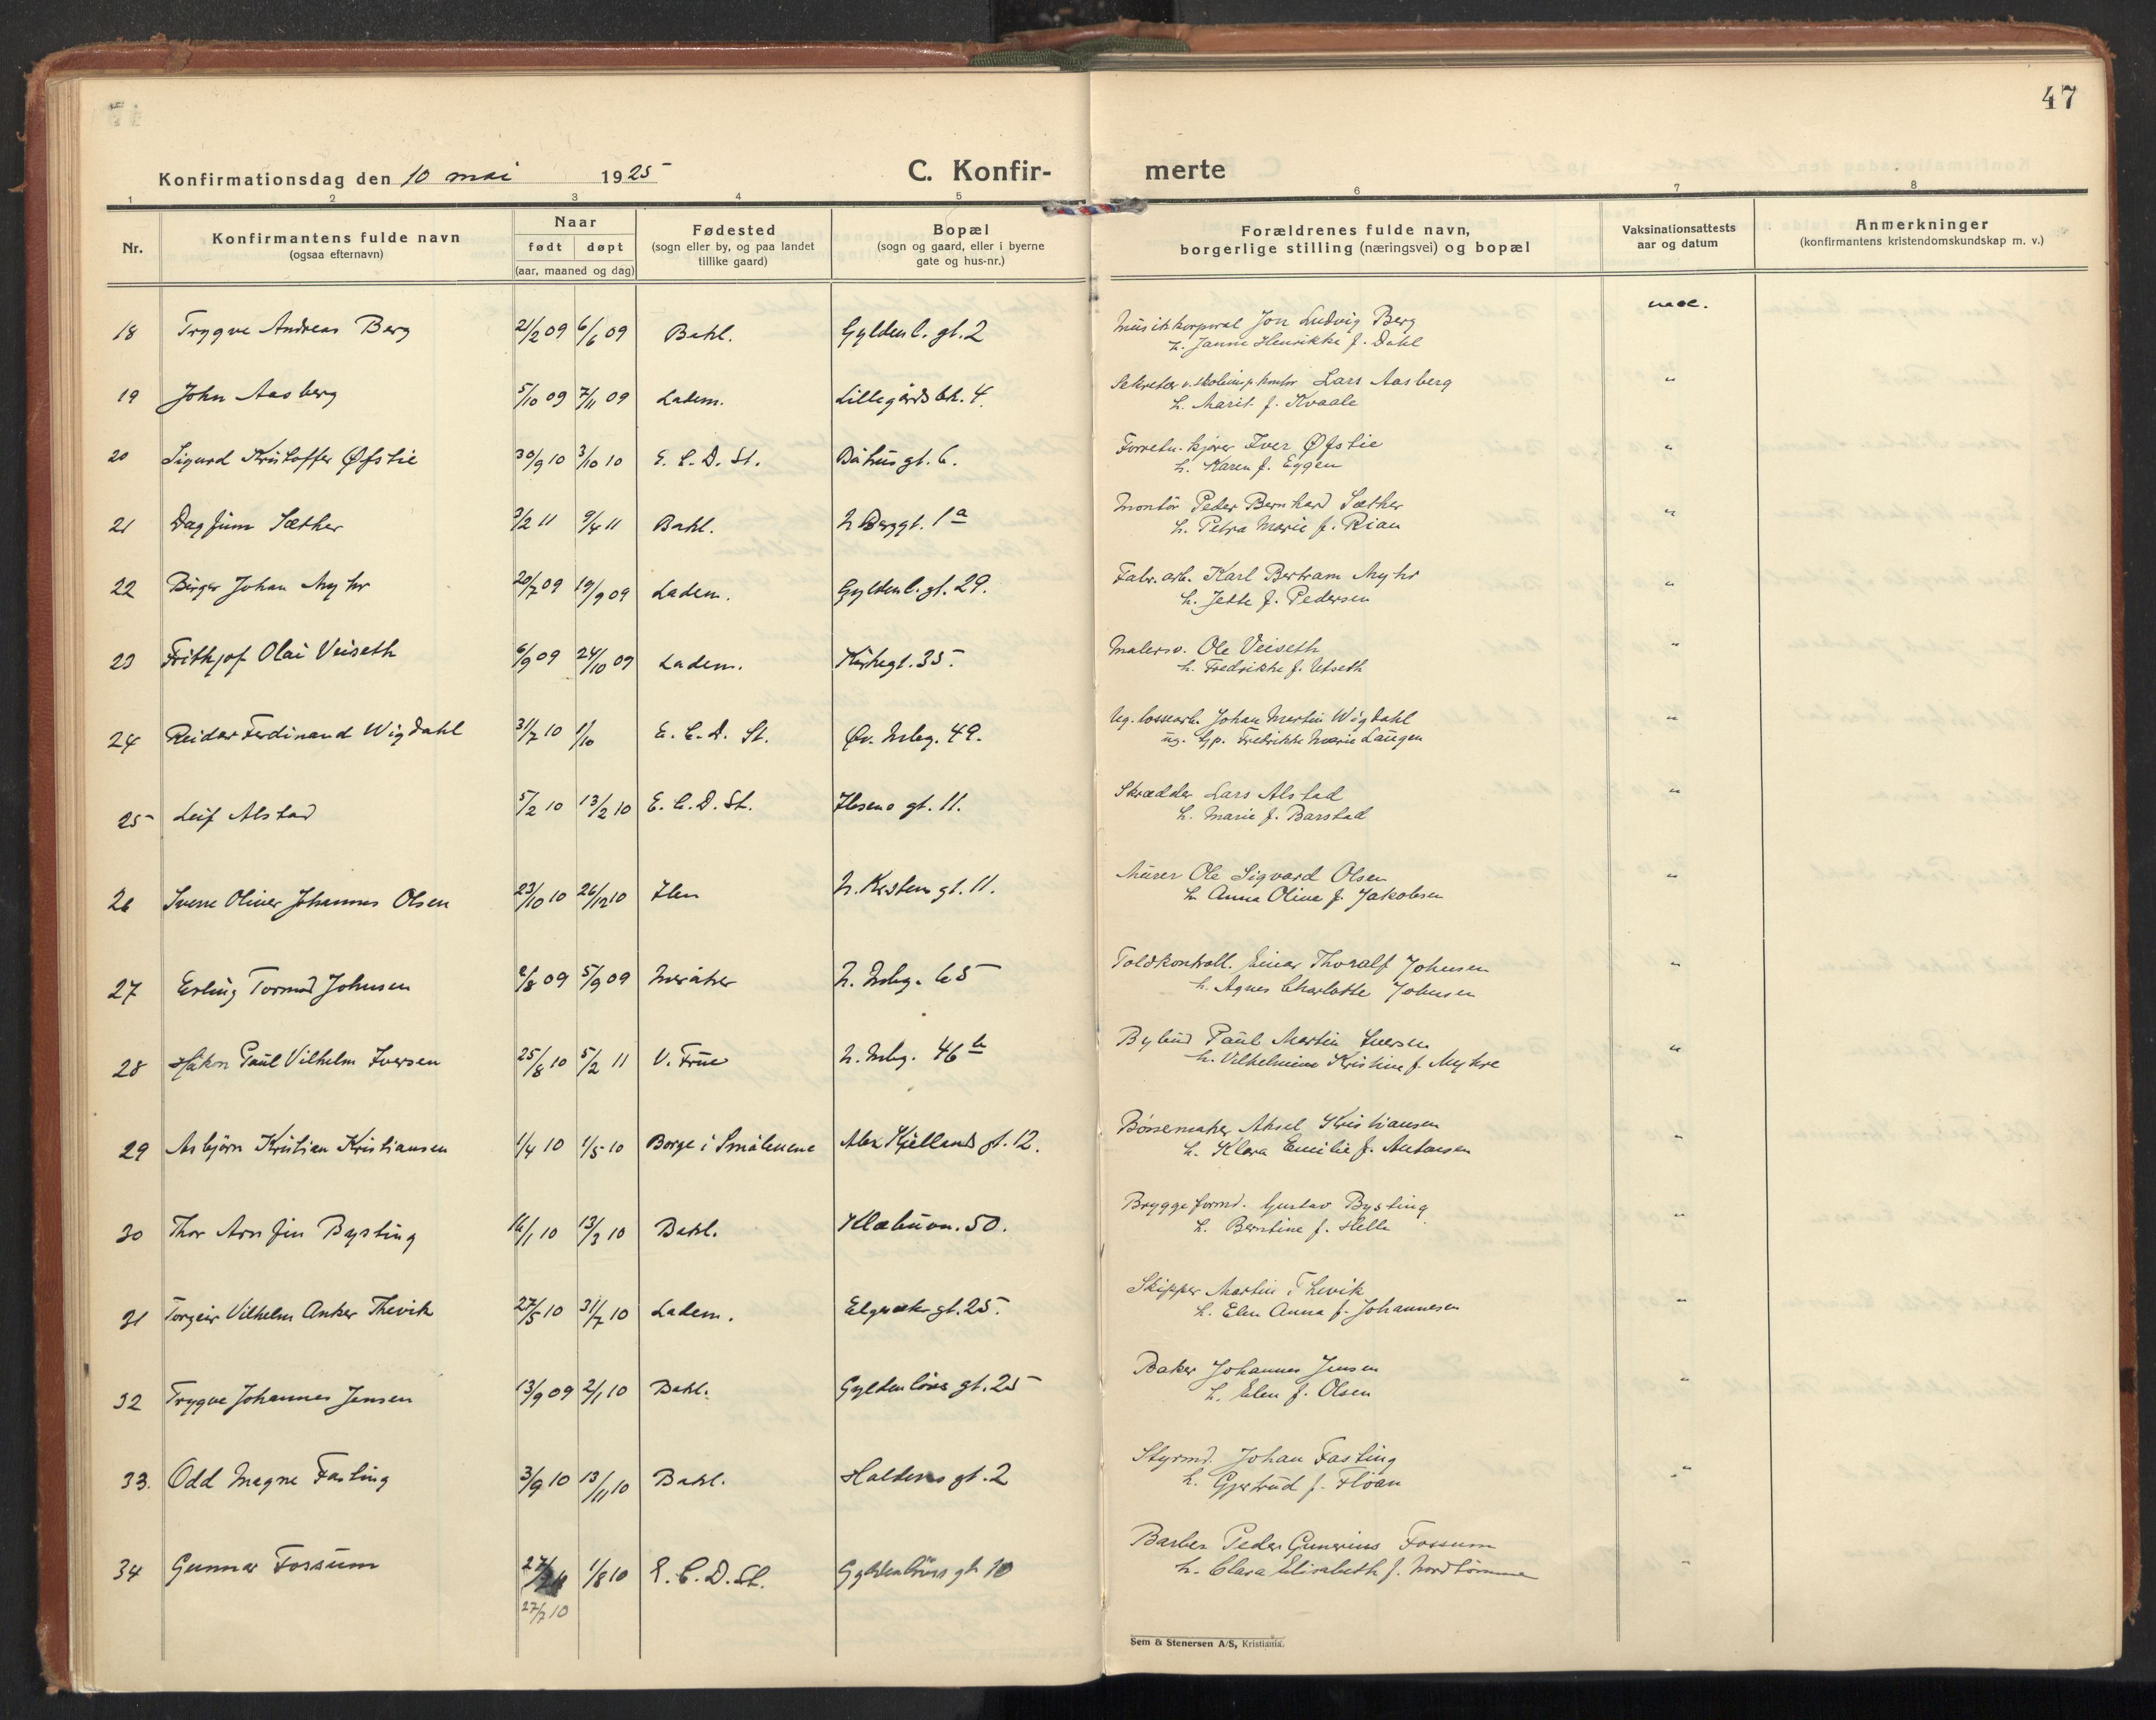 47
Konfirmationsdag den 10 mai 1925
C. Konfir-
merte
1 2 3 4 5 6 7 8
Nr.
Konfirmantens fulde navn
(ogsaa efternavn)
Naar
født døpt
(aar, maaned og dag)
Fødested
(sogn eller by, og paa landet
tillike gaard)
Bopæl
(sogn og gaard, eller i byerne
gate og hus-nr.)
Forældrenes fulde navn,
borgerlige stilling (næringsvei) og bopæl
Vaksinationsattests
aar og datum
Anmerkninger
(konfirmantens kristendomskundskap m. v.)
18 Trygve Andreas Berg 21/2 09 6/6 09 Bakl. Gyldenl. gt. 2 Musikkorporal Jon Ludvig Berg
h. Janna Henrikke f. Dahl
19 John Aasberg 5/10 09 7/11 09 Ladem. Lillegårdsbk. 4 Lars Aasberg "
h. Marit f. Kvaale
20 Sigurd Kristoffer Øfstie 30/9 10 3/10 10 E. C. D. St. Båhus gt. 6. Forretn. kjører Iver Øfstie "
h. Karen f. Eggen
21 Dagfinn Sæther 3/2 11 9/4 11 Bakl. N. Berggt. 1a Montør Peder Bernhard Sæther "
h. Petra Marie f. Rian
22 Birger Johan Myhr 20/7 09 19/9 09 Ladem. Gyldenl. gt. 29. Fabr. arb. Karl Bertram Myhr "
h. Jette f. Pedersen
23 Frithjof Olai Veiseth 6/9 09 24/10 09 Ladem. Kirkegt. 35. Malersv. Ole Veiseth "
h. Fredrikke f. Utseth
24 Reidar Ferdinand Wigdahl 31/7 10 1/10 E. C. D. St. Øv. Mbg. 49. Ug. lossearb. Johan Martin Wigdahl "
ug. Gp. Fredrikke Marie Laugen
25 Leif Alstad 5/2 10 13/2 10 E. C. D. St. Ilsens gt. 11. Skrædder Lars Alstad "
h. Marie f. Barstad
26 Sverre Oliver Johannes Olsen 23/10 10 26/12 10 Ilen N. Kristens gt. 11. Murer Ole Sigvard Olsen "
h. Anna Oline f. Jakobsen
27 Erling Tormod Johnsen 2/8 09 5/9 09 Meråker N. Mbg. 65 Toldkontroll. Einar Thoralf Johnsen "
h. Agnes Charlotte Johnsen
28 Håkon Paul Vilhelm Iversen 25/8 10 5/2 11 V. Frue N. Mbg. 46b Bybud Paul Martin Iversen "
h. Vilhelmine Kristine f. Myhre
29 Asbjørn Kristian Kristiansen 1/4 10 1/5 10 Borge i Smålenene Alex Kjellands gt. 12. Børsemaker Aksel Kristiansen "
h. Klara Emilie f. Antonsen
30 Thor Arnfin Bysting 16/1 10 13/3 10 Bakl. Klæbuvn. 50. Bryggeformd. Gustav Bysting "
h. Berntine f. Helle
31 Torgeir Vilhelm Anker Thevik 27/5 10 31/7 10 Ladem. Elgesæter gt. 25. Skipper Martin Thevik "
h. Elen Anna f. Johannesen
32 Trygve Johannes Jensen 13/9 09 2/1 10 Bakl. Gyldenløves gt. 25 Baker Johannes Jensen "
h. Elen f. Olsen
33. Odd Magne Fasting 3/9 10 13/11 10 Bakl. Haltens gt. 2 Styrmd. Johan Fasting "
h. Gjertrud f. Floan
34 Gunnar Fossum 1/8 10 E. C. D. St. Gyldenløves gt 10 Barber Peder Gunerius Fossum "
27/7 10 h. Clara Elisabeth f. Nordtømme
Sem & Stenersen A/S, Kristiania.